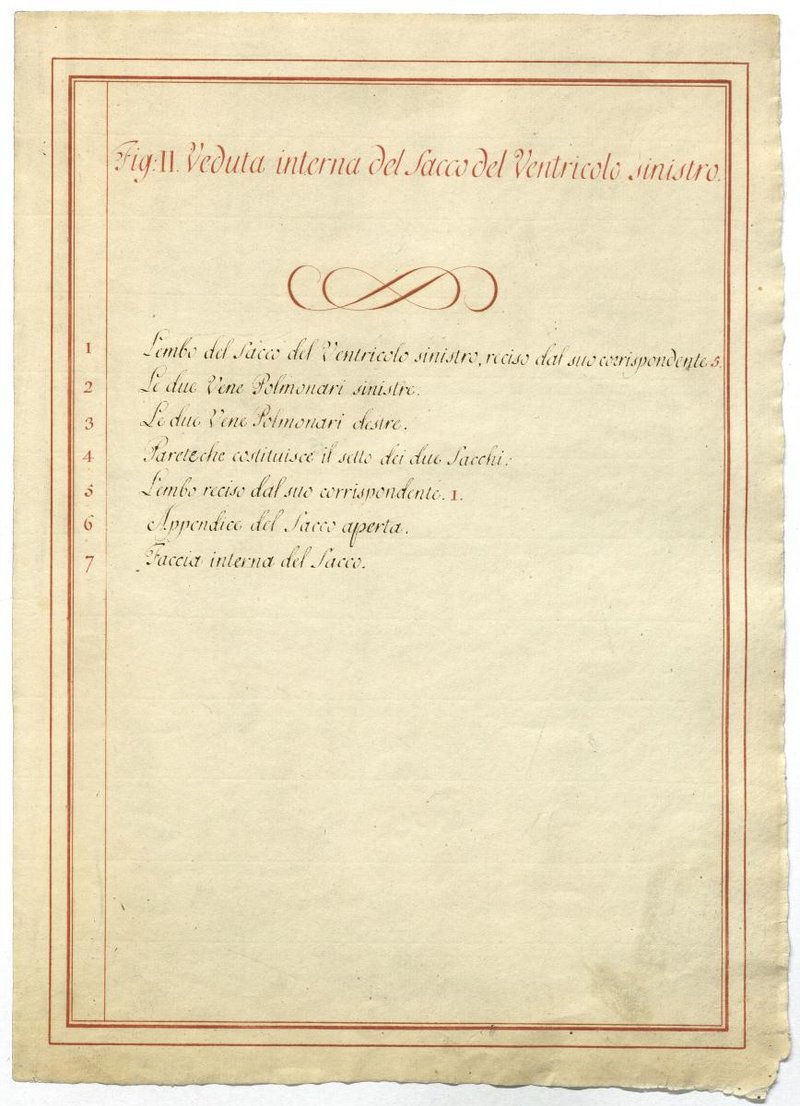 Fig: II. Veduta interna del Sacco del Ventricolo sinistro.
1 Lembo del Sacco del Ventricolo sinistro, reciso dal suo corrispondente 5.
2 Le due Vene Polmonari sinistre.
3 Le due Vene Polmonari destre.
4 Parete che costituisce il setto dei due Sacchi.
5 Lembo reciso dal suo corrispondente. 1.
6 Appendice del Sacco aperta.
7 Faccia interna del Sacco.